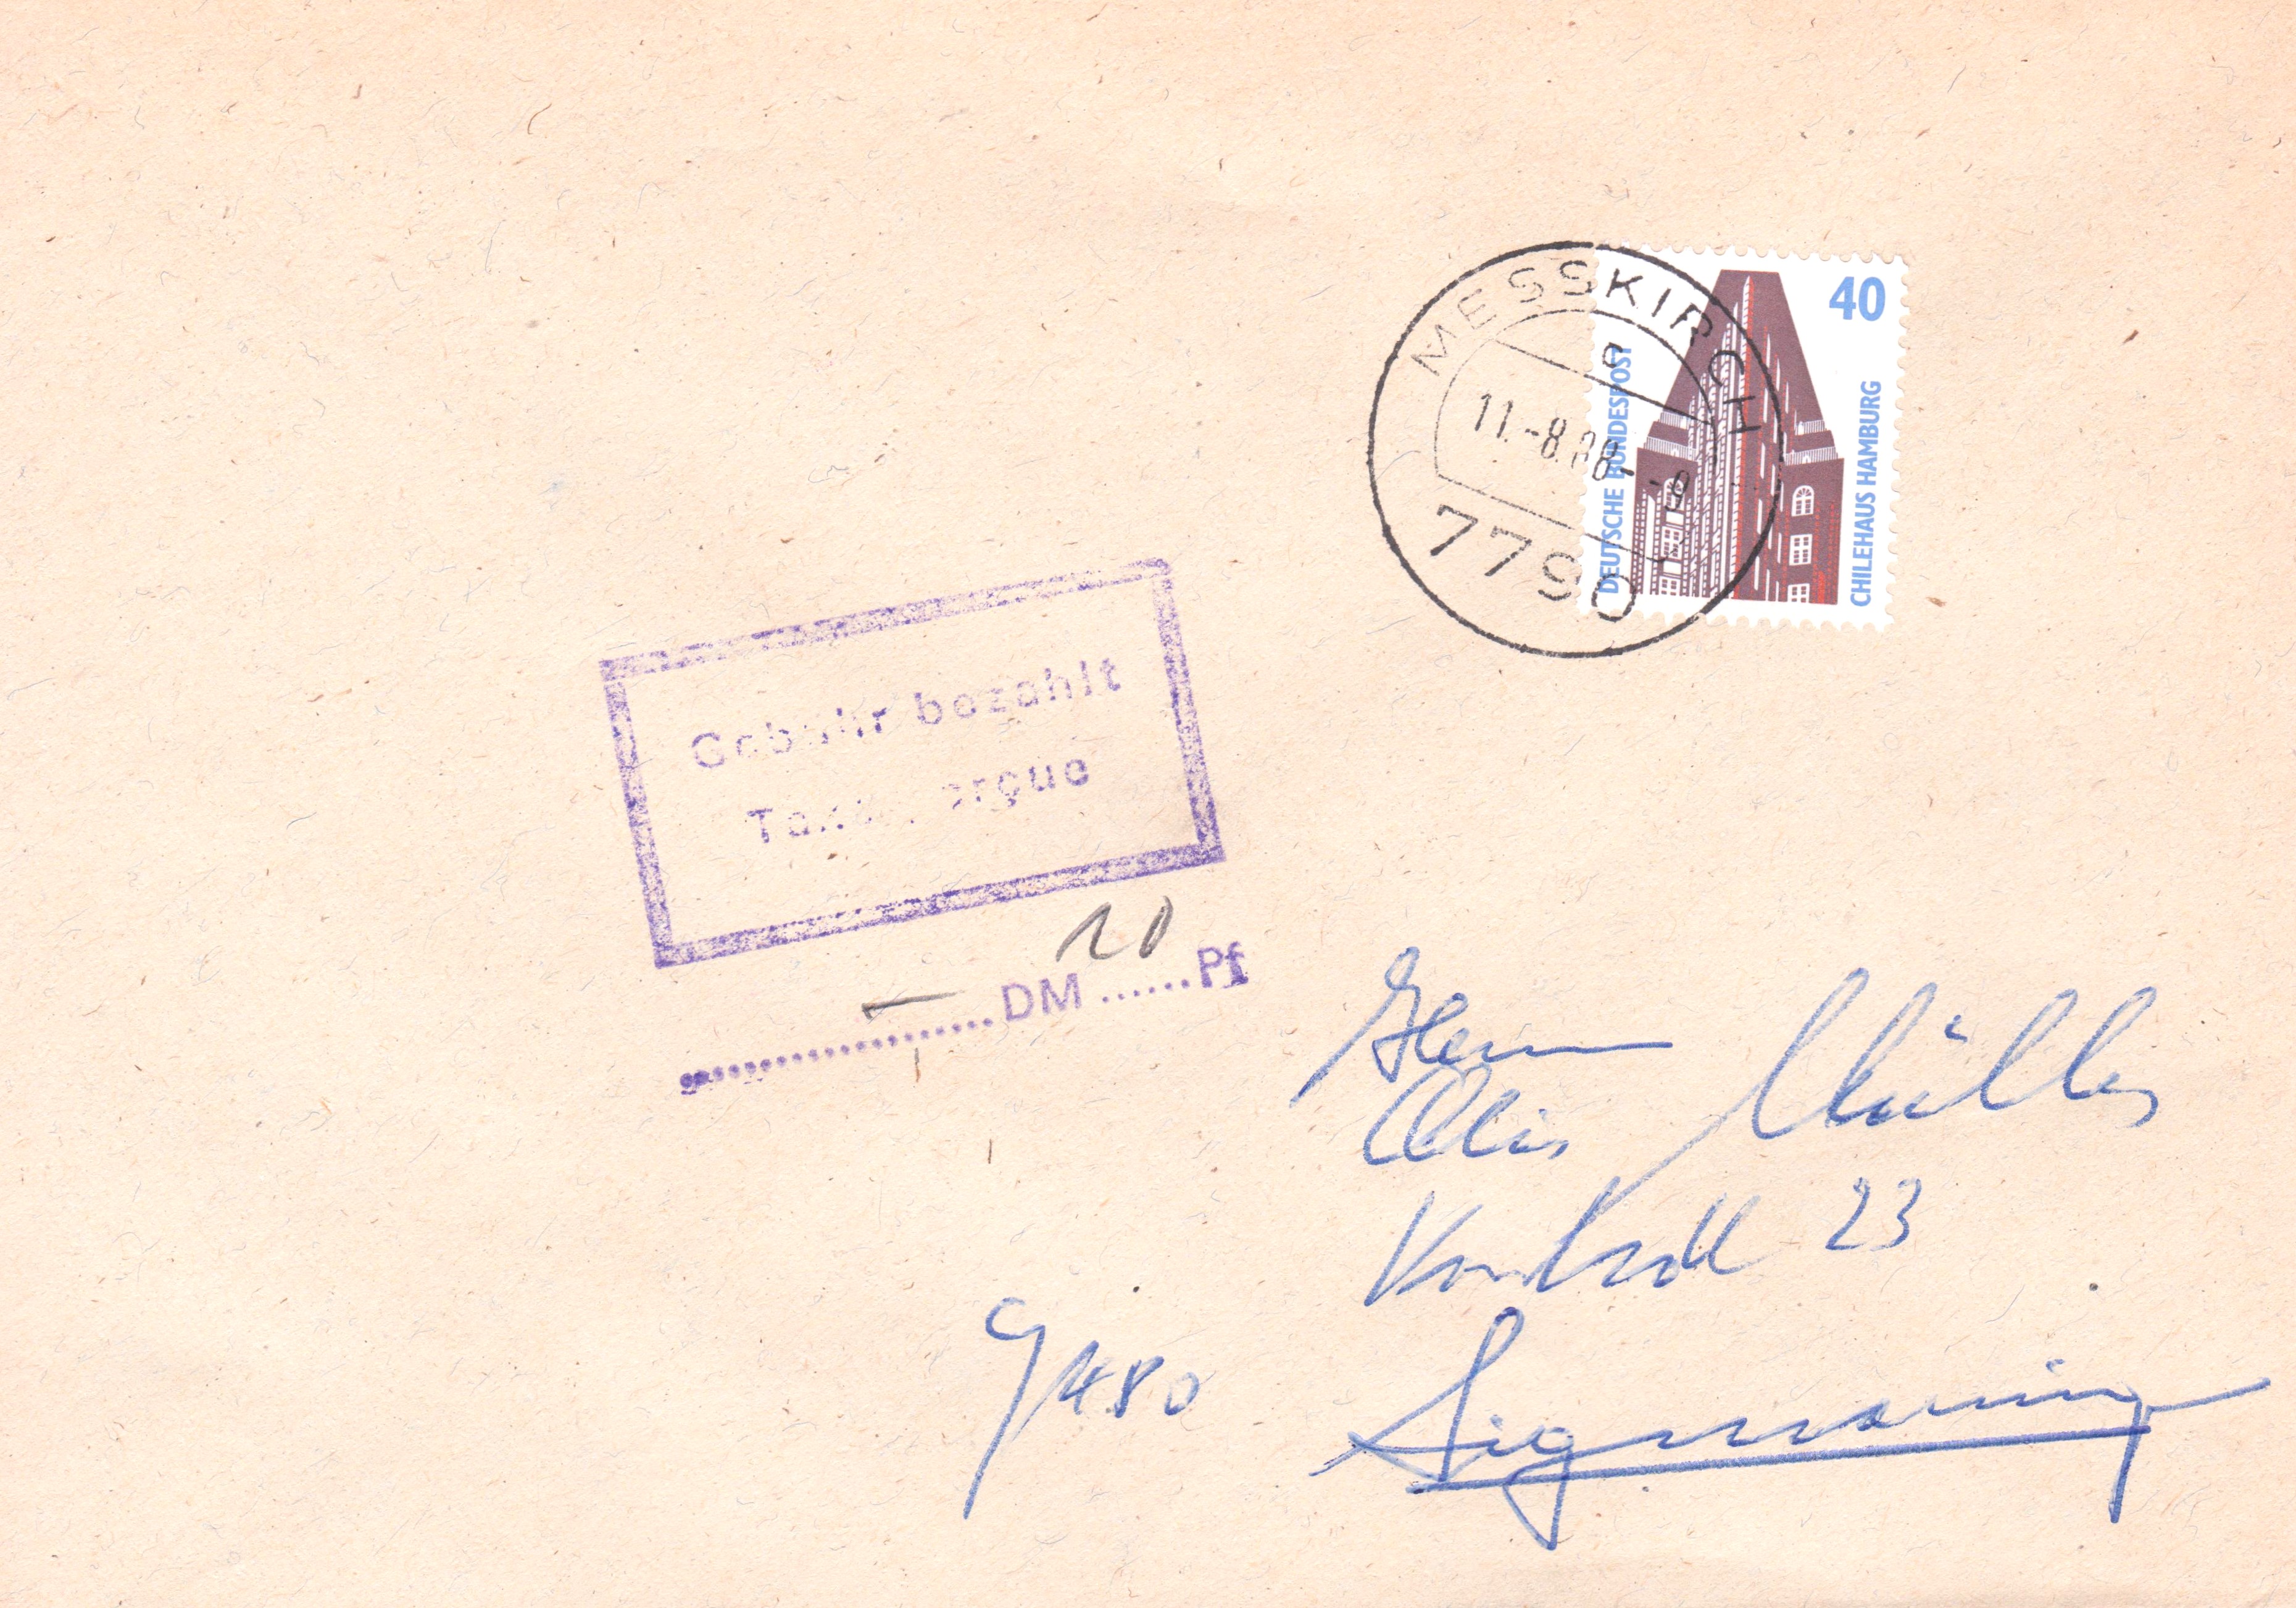 MESSKIRCH
11.-8.88.-18
7790
40
DEUTSCHE BUNDESPOST
CHILEHAUS HAMBURG
Gebühr bezahlt
Taxe perçue
— DM 10 Pf
Herrn
Müller
23
7480 Sigmaringen